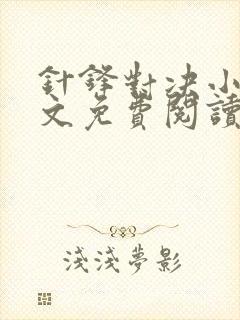 針鋒對決小
文免費閱讀
淺淺夢影